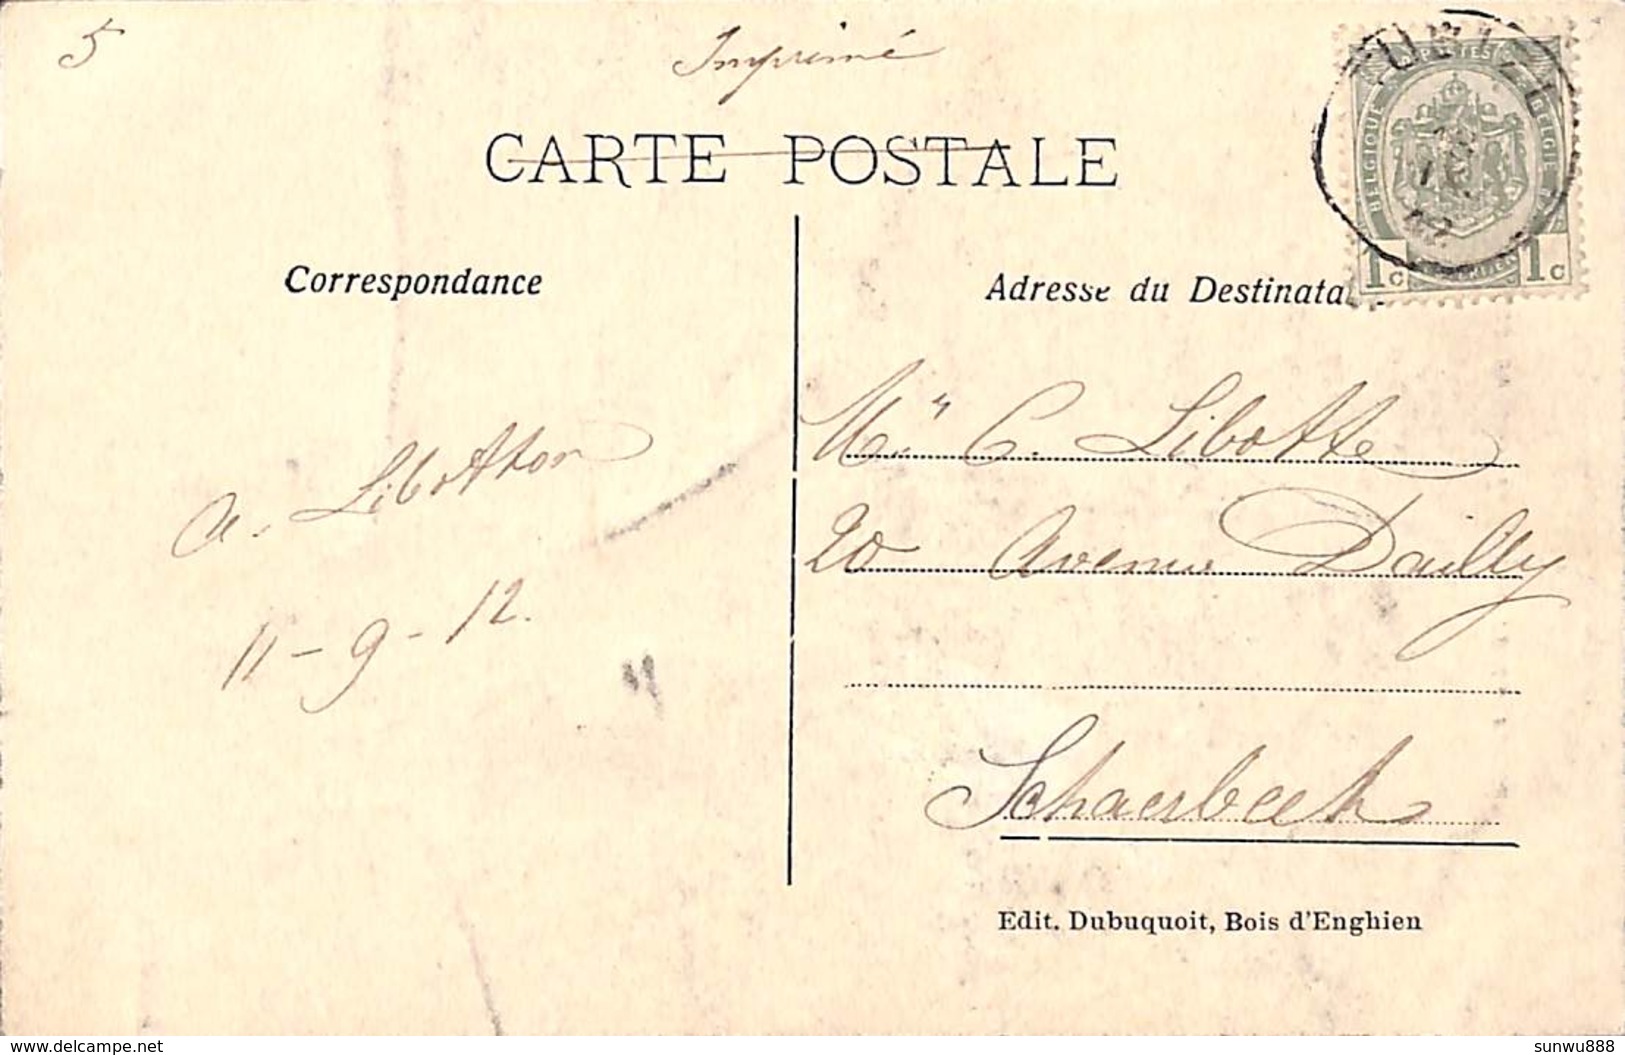 5
Imprimé
CARTE POSTALE
Correspondance
Adresse du Destinata
BELGIQUE
POSTES
BELGIE
1c
1c
Mlle C. Libotte
20 Avenue Dailly
Schaerbeek
a. Libotton
11-9-12.
Edit. Dubuquoit, Bois d'Enghien
www.delcampe.net
sunwu888